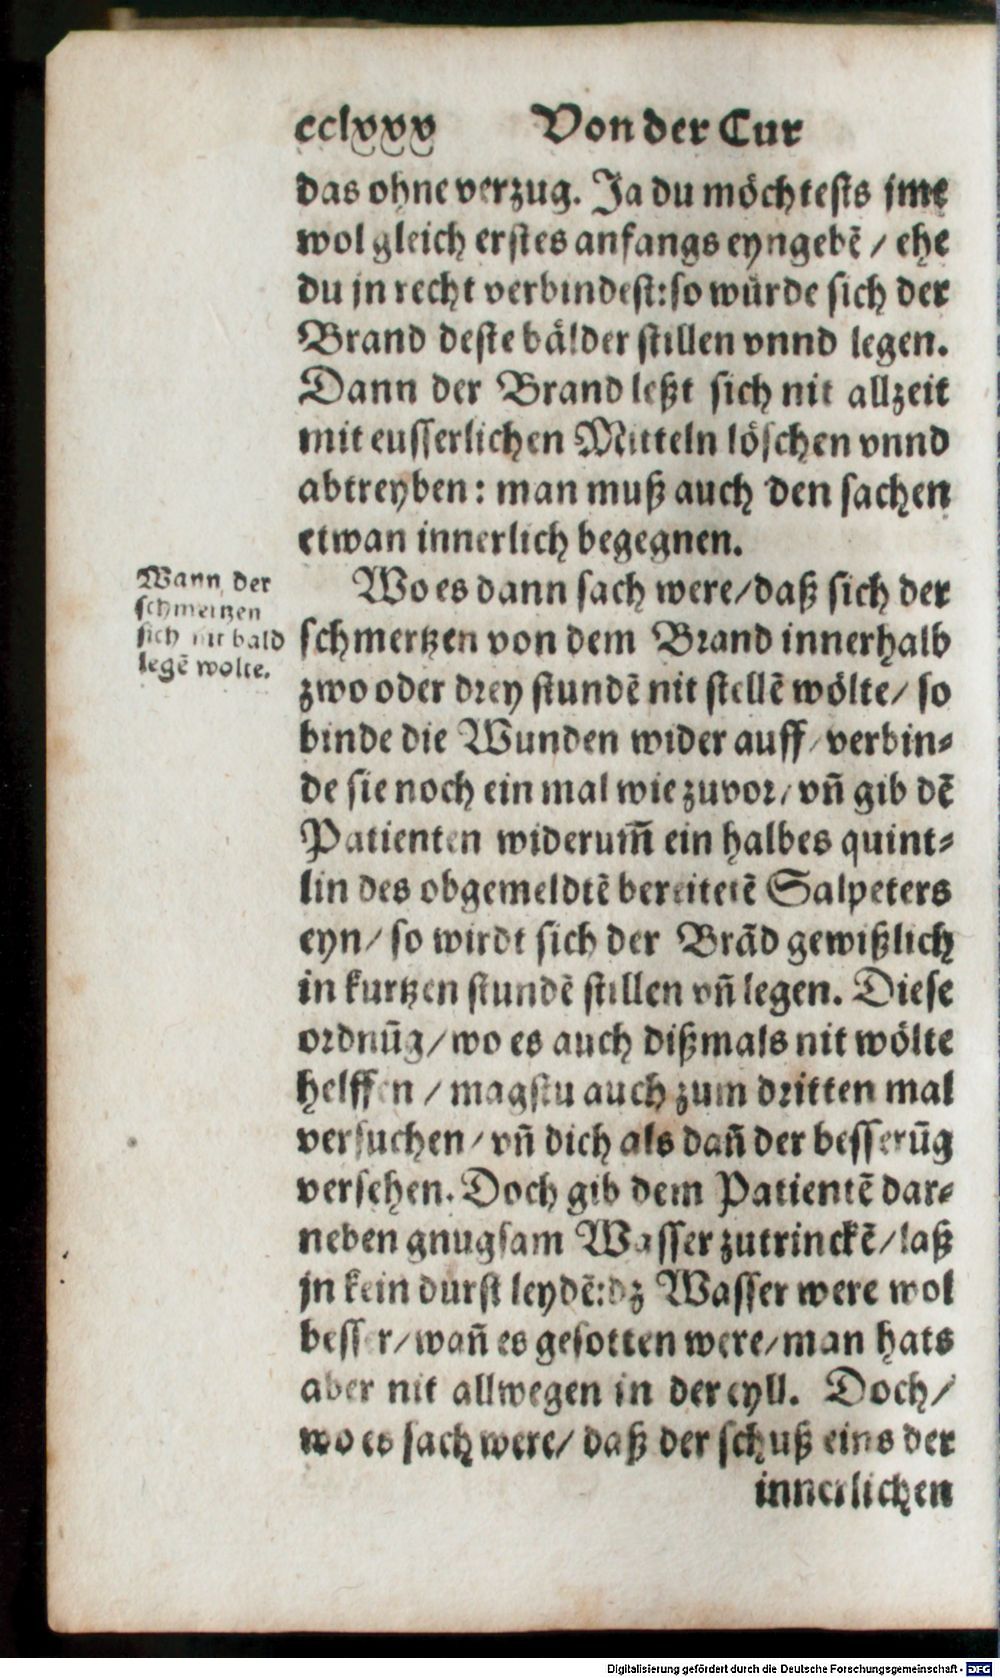 cclxxx Von der Cur
das ohne verzug. Ja du möchtests jme
wol gleich erstes anfangs eyngebẽ / ehe
du jn recht verbindest: so würde sich der
Brand deste bälder stillen vnnd legen.
Dann der Brand leßt sich nit allzeit
mit eusserlichen Mitteln löschen vnnd
abtreyben: man muß auch den sachen
etwan innerlich begegnen.
Wann der
schmertzen
sich nit bald
legẽ wolte.
Wo es dann sach were / daß sich der
schmertzen von dem Brand innerhalb
zwo oder drey stundẽ nit stellẽ wölte / so
binde die Wunden wider auff / verbin-
de sie noch ein mal wie zuvor / vñ gib dẽ
Patienten widerum̃ ein halbes quint-
lin des obgemeldtẽ bereitetẽ Salpeters
eyn / so wirdt sich der Brãd gewißlich
in kurtzen stundẽ stillen vñ legen. Diese
ordnũg / wo es auch dißmals nit wölte
helffen / magstu auch zum dritten mal
versuchen / vñ dich als dañ der besserũg
versehen. Doch gib dem Patientẽ dar-
neben gnugsam Wasser zutrinckẽ / laß
jn kein durst leydẽ: dz Wasser were wol
besser / wañ es gesotten were / man hats
aber nit allwegen in der eyll. Doch /
wo es sach were / daß der schuß eins der
innerlichen
Digitalisierung gefördert durch die Deutsche Forschungsgemeinschaft - DFG